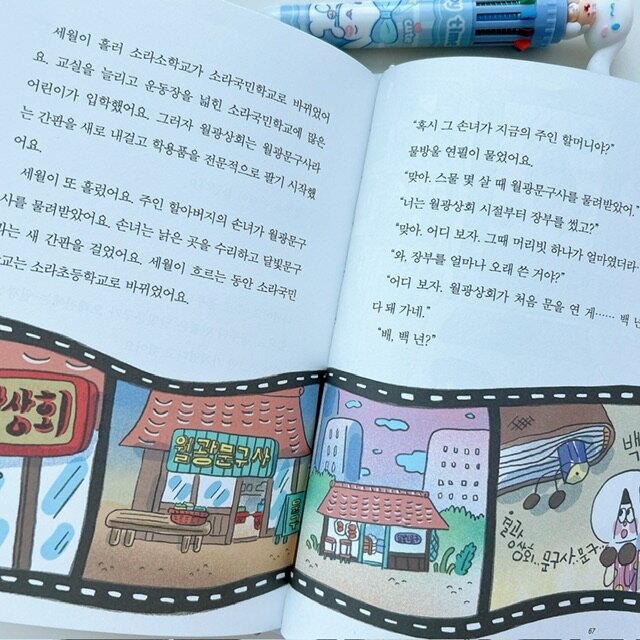 세월이 흘러 소라소학교가 소라국민학교로 바뀌었어
요. 교실을 늘리고 운동장을 넓힌 소라국민학교에 많은
어린이가 입학했어요. 그러자 월광상회는 월광문구사라
는 간판을 새로 내걸고 학용품을 전문적으로 팔기 시작했
어요.
세월이 또 흘렀어요. 주인 할아버지의 손녀가 월광문구
사를 물려받았어요. 손녀는 낡은 곳을 수리하고 달빛문구
라는 새 간판을 걸었어요. 세월이 흐르는 동안 소라국민
교는 소라초등학교로 바뀌었어요.
상회
월광문구사
문구
“혹시 그 손녀가 지금의 주인 할머니야?”
물방울 연필이 물었어요.
“맞아. 스물 몇 살 때 월광문구사를 물려받았어.”
“너는 월광상회 시절부터 장부를 썼고?”
“맞아. 어디 보자. 그때 머리빗 하나가 얼마였더라.
“와, 장부를 얼마나 오래 쓴 거야?”
“어디 보자. 월광상회가 처음 문을 연 게…… 백 년
다 돼 가네.”
“배, 백 년?”
백
월광
상회. 문구사. 문구
67